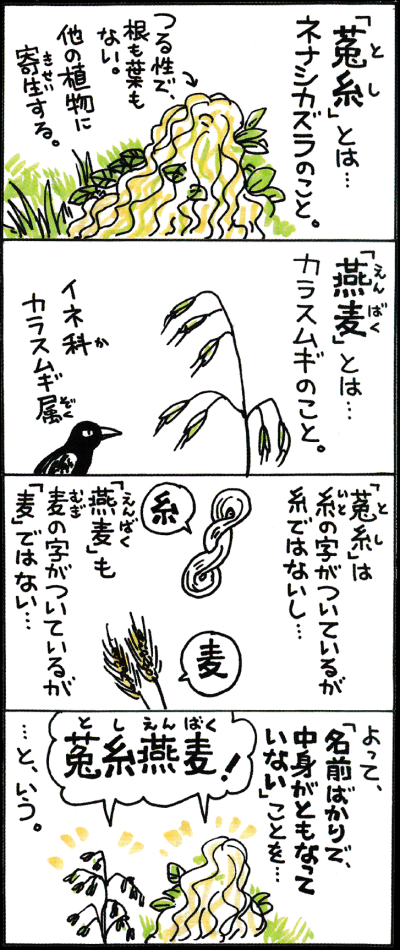 「菟糸」とは…
とし
ネナシカズラのこと。
つる性で、
根も葉も
ない。
他の植物に
寄生する。
きせい
「燕麦」とは…
えんばく
カラスムギのこと。
イネ科
か
カラスムギ属
ぞく
「菟糸」は
とし
糸の字がついているが
いと
糸ではないし…
糸
「燕麦」も
えんばく
麦の字がついているが
むぎ
「麦」ではない…
麦
よって、
「名前ばかりで、
中身がともなって
いない」ことを…
菟糸燕麦!
としえんばく
…と、いう。